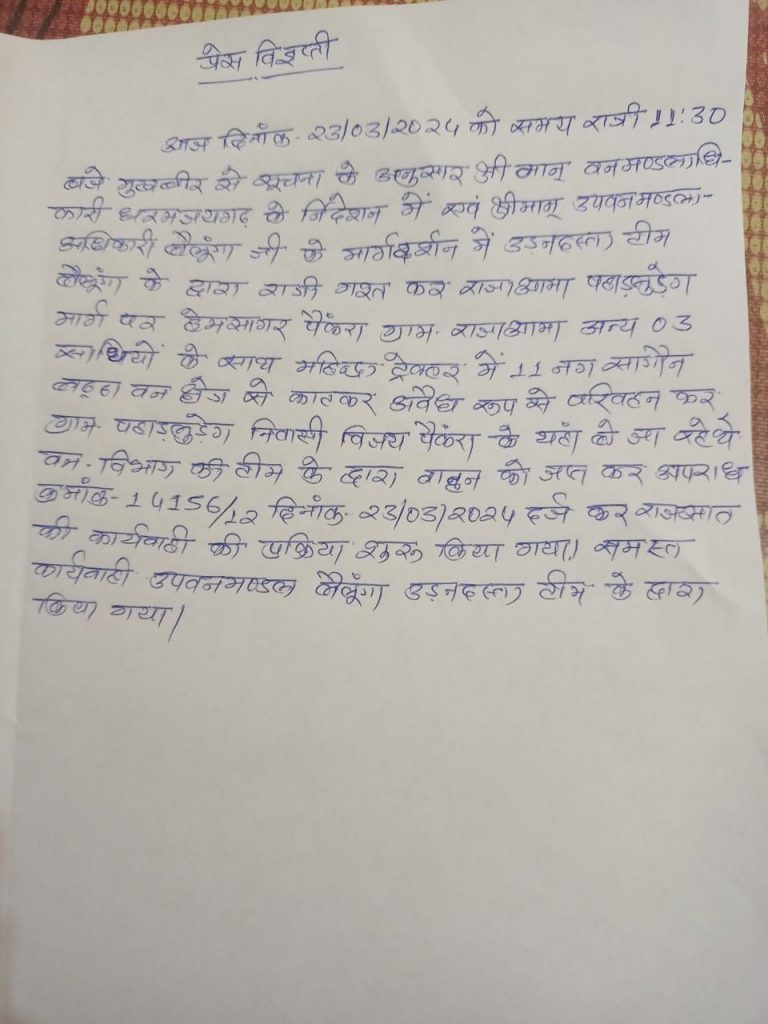 प्रेस विज्ञप्ती
आज दिनांक- 23/03/2024 को समय रात्री 11:30
बजे मुखबीर से सूचना के अनुसार श्री मान् वनमण्डलाधि-
कारी धरमजयगढ़ के निर्देशन में एवं श्रीमान् उपवनमण्डला-
अधिकारी लैलूंगा जी के मार्गदर्शन में उड़नदस्ता टीम
लैलूंगा के द्वारा रात्री गश्त कर राजाआमा पहाड़लुड़ेग
मार्ग पर हेमसागर पैंकरा ग्राम- राजाआमा अन्य 03
साथियों के साथ महिन्द्रा ट्रेक्टर में 11 नग सागौन
लट्ठा वन क्षेत्र से काटकर अवैध रूप से परिवहन कर
ग्राम- पहाड़लुड़ेग निवासी विजय पैंकरा के यहां ले जा रहे थे
वन- विभाग की टीम के द्वारा वाहन को जप्त कर अपराध
क्रमांक- 14156/12 दिनांक- 23/03/2024 दर्ज कर राजसात
की कार्यवाही की प्रक्रिया शुरू किया गया। समस्त
कार्यवाही उपवनमण्डल लैलूंगा उड़नदस्ता टीम के द्वारा
किया गया।